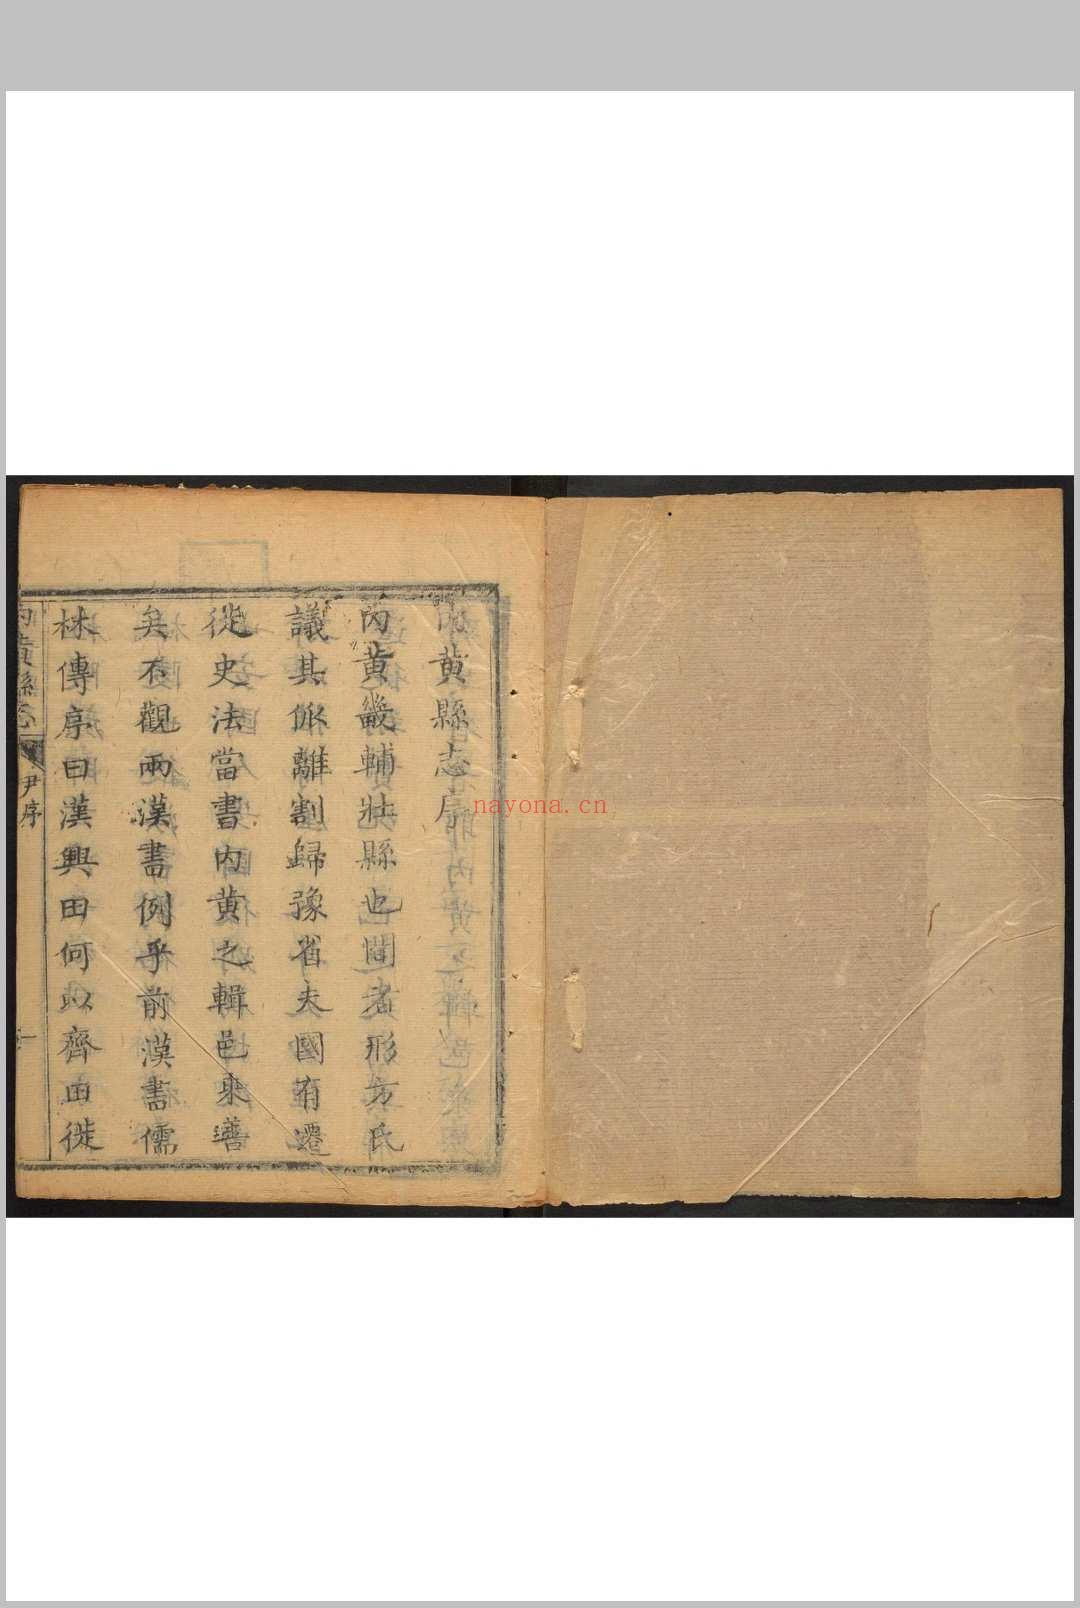 內黃縣志序
內黃畿輔壯縣也閒者形方氏
議其㑊離割歸豫省夫國有遷
徙史法當書內黃之輯邑乘譱
矣不觀兩漢書例乎前漢書儒
林傳序曰漢興田何以齊田徙
內黃縣志
尹序
一
nayona.cn